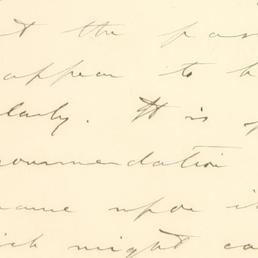 t the pas
appear to b
larly. It is
commendation
name upon it
ich might ca